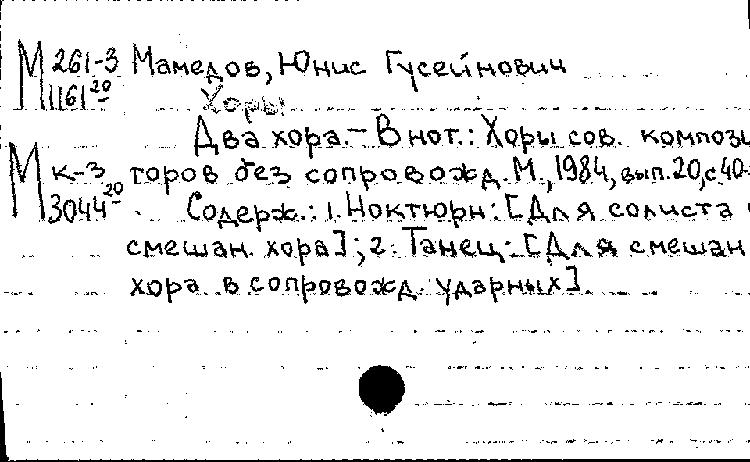 М 261-3 Мамедов, Юнис Гусейнович
1161 20 Хоры
Два хора. - В нот.: Хоры сов. компози
М к-3 торов без сопровожд. М., 1984, вып. 20, с 40-
3044 20 Содерж.: 1. Ноктюрн: [Для солиста
смешан. хора]; 2. Танец: [Для смешан
хора в сопровожд. ударных].